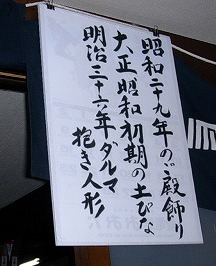 昭和二十九年のご殿飾り
大正昭和初期の土びな
明治三十六年ダルマ
抱き人形